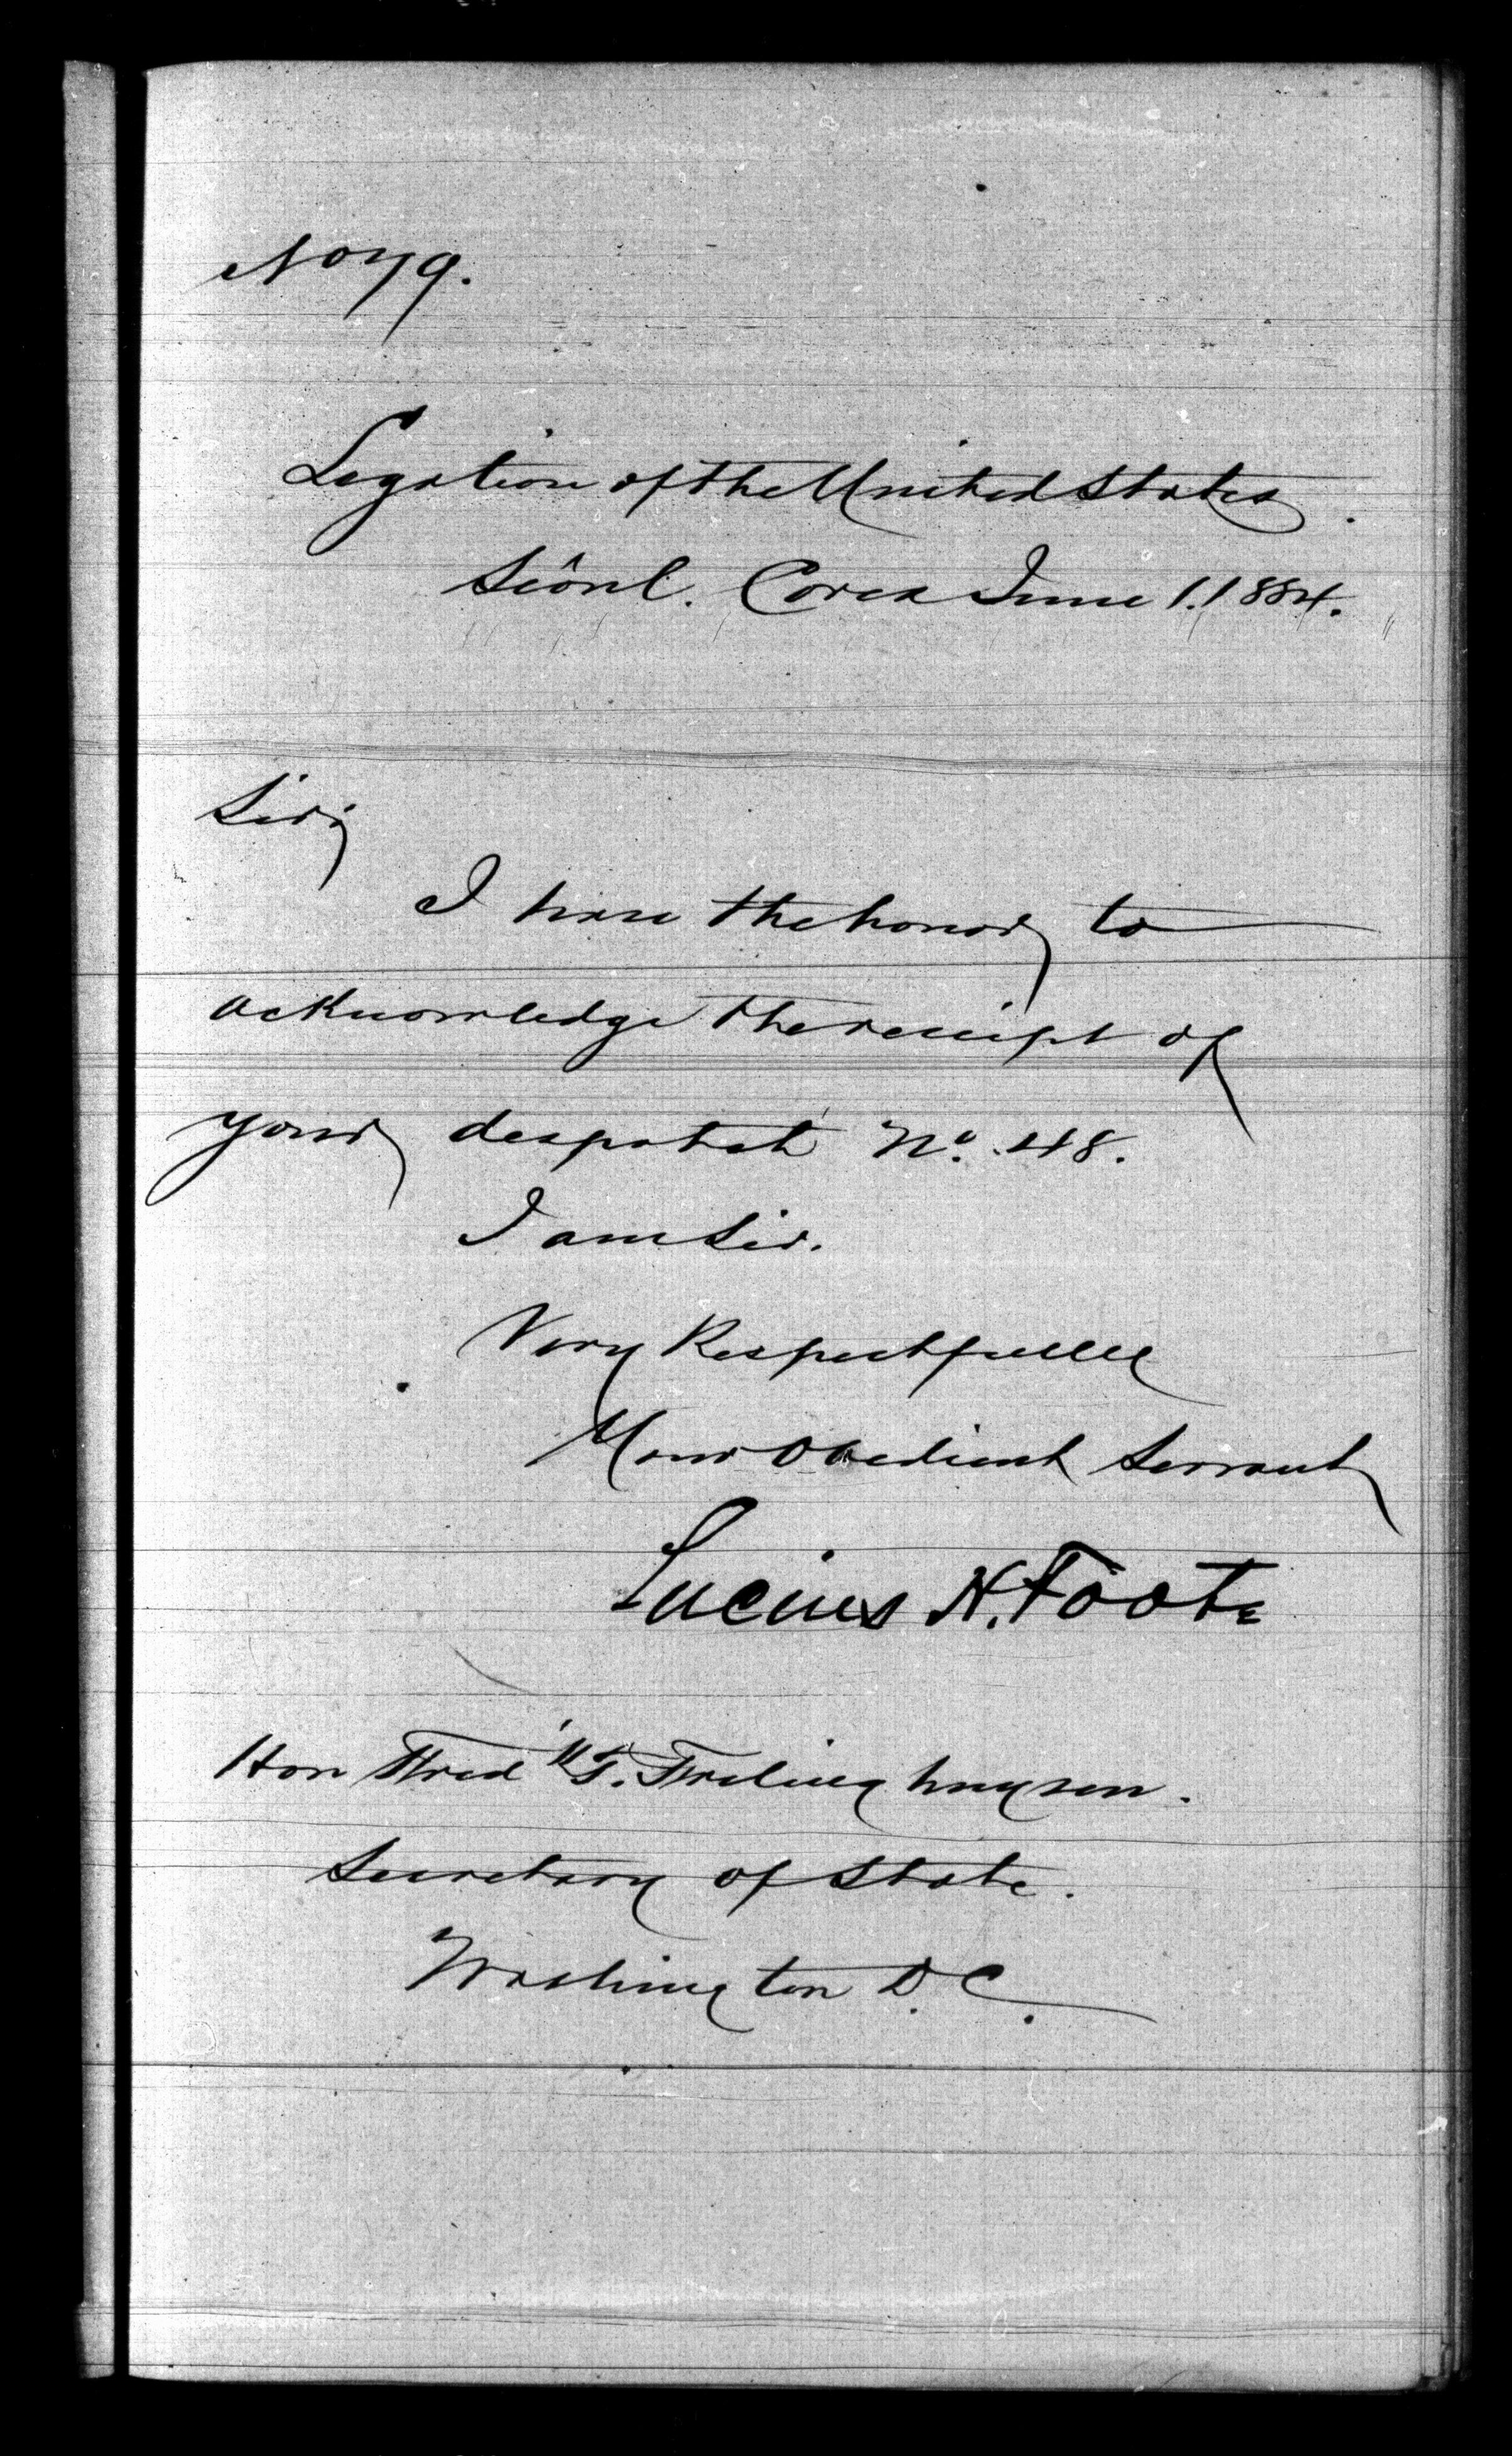 No 79.
Legation of the United States.
Séoul. Corea June 1. 1884.
Sir;
I have the honor to
acknowledge the receipt of
your despatch No. 48.
I am Sir.
Very Respectfully
Your Obedient Servant
Lucius H. Foote
Hon Fred'k T. Frelinghuysen.
Secretary of State.
Washington D.C.